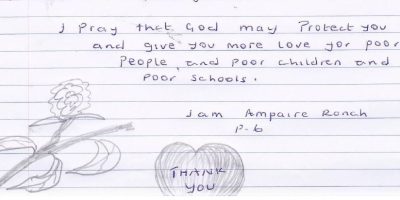 I Pray that God may Protect you
and give you more love for poor
People, and poor children and
poor schools.
I am Ampaire Ronah
P-6
THANK
YOU